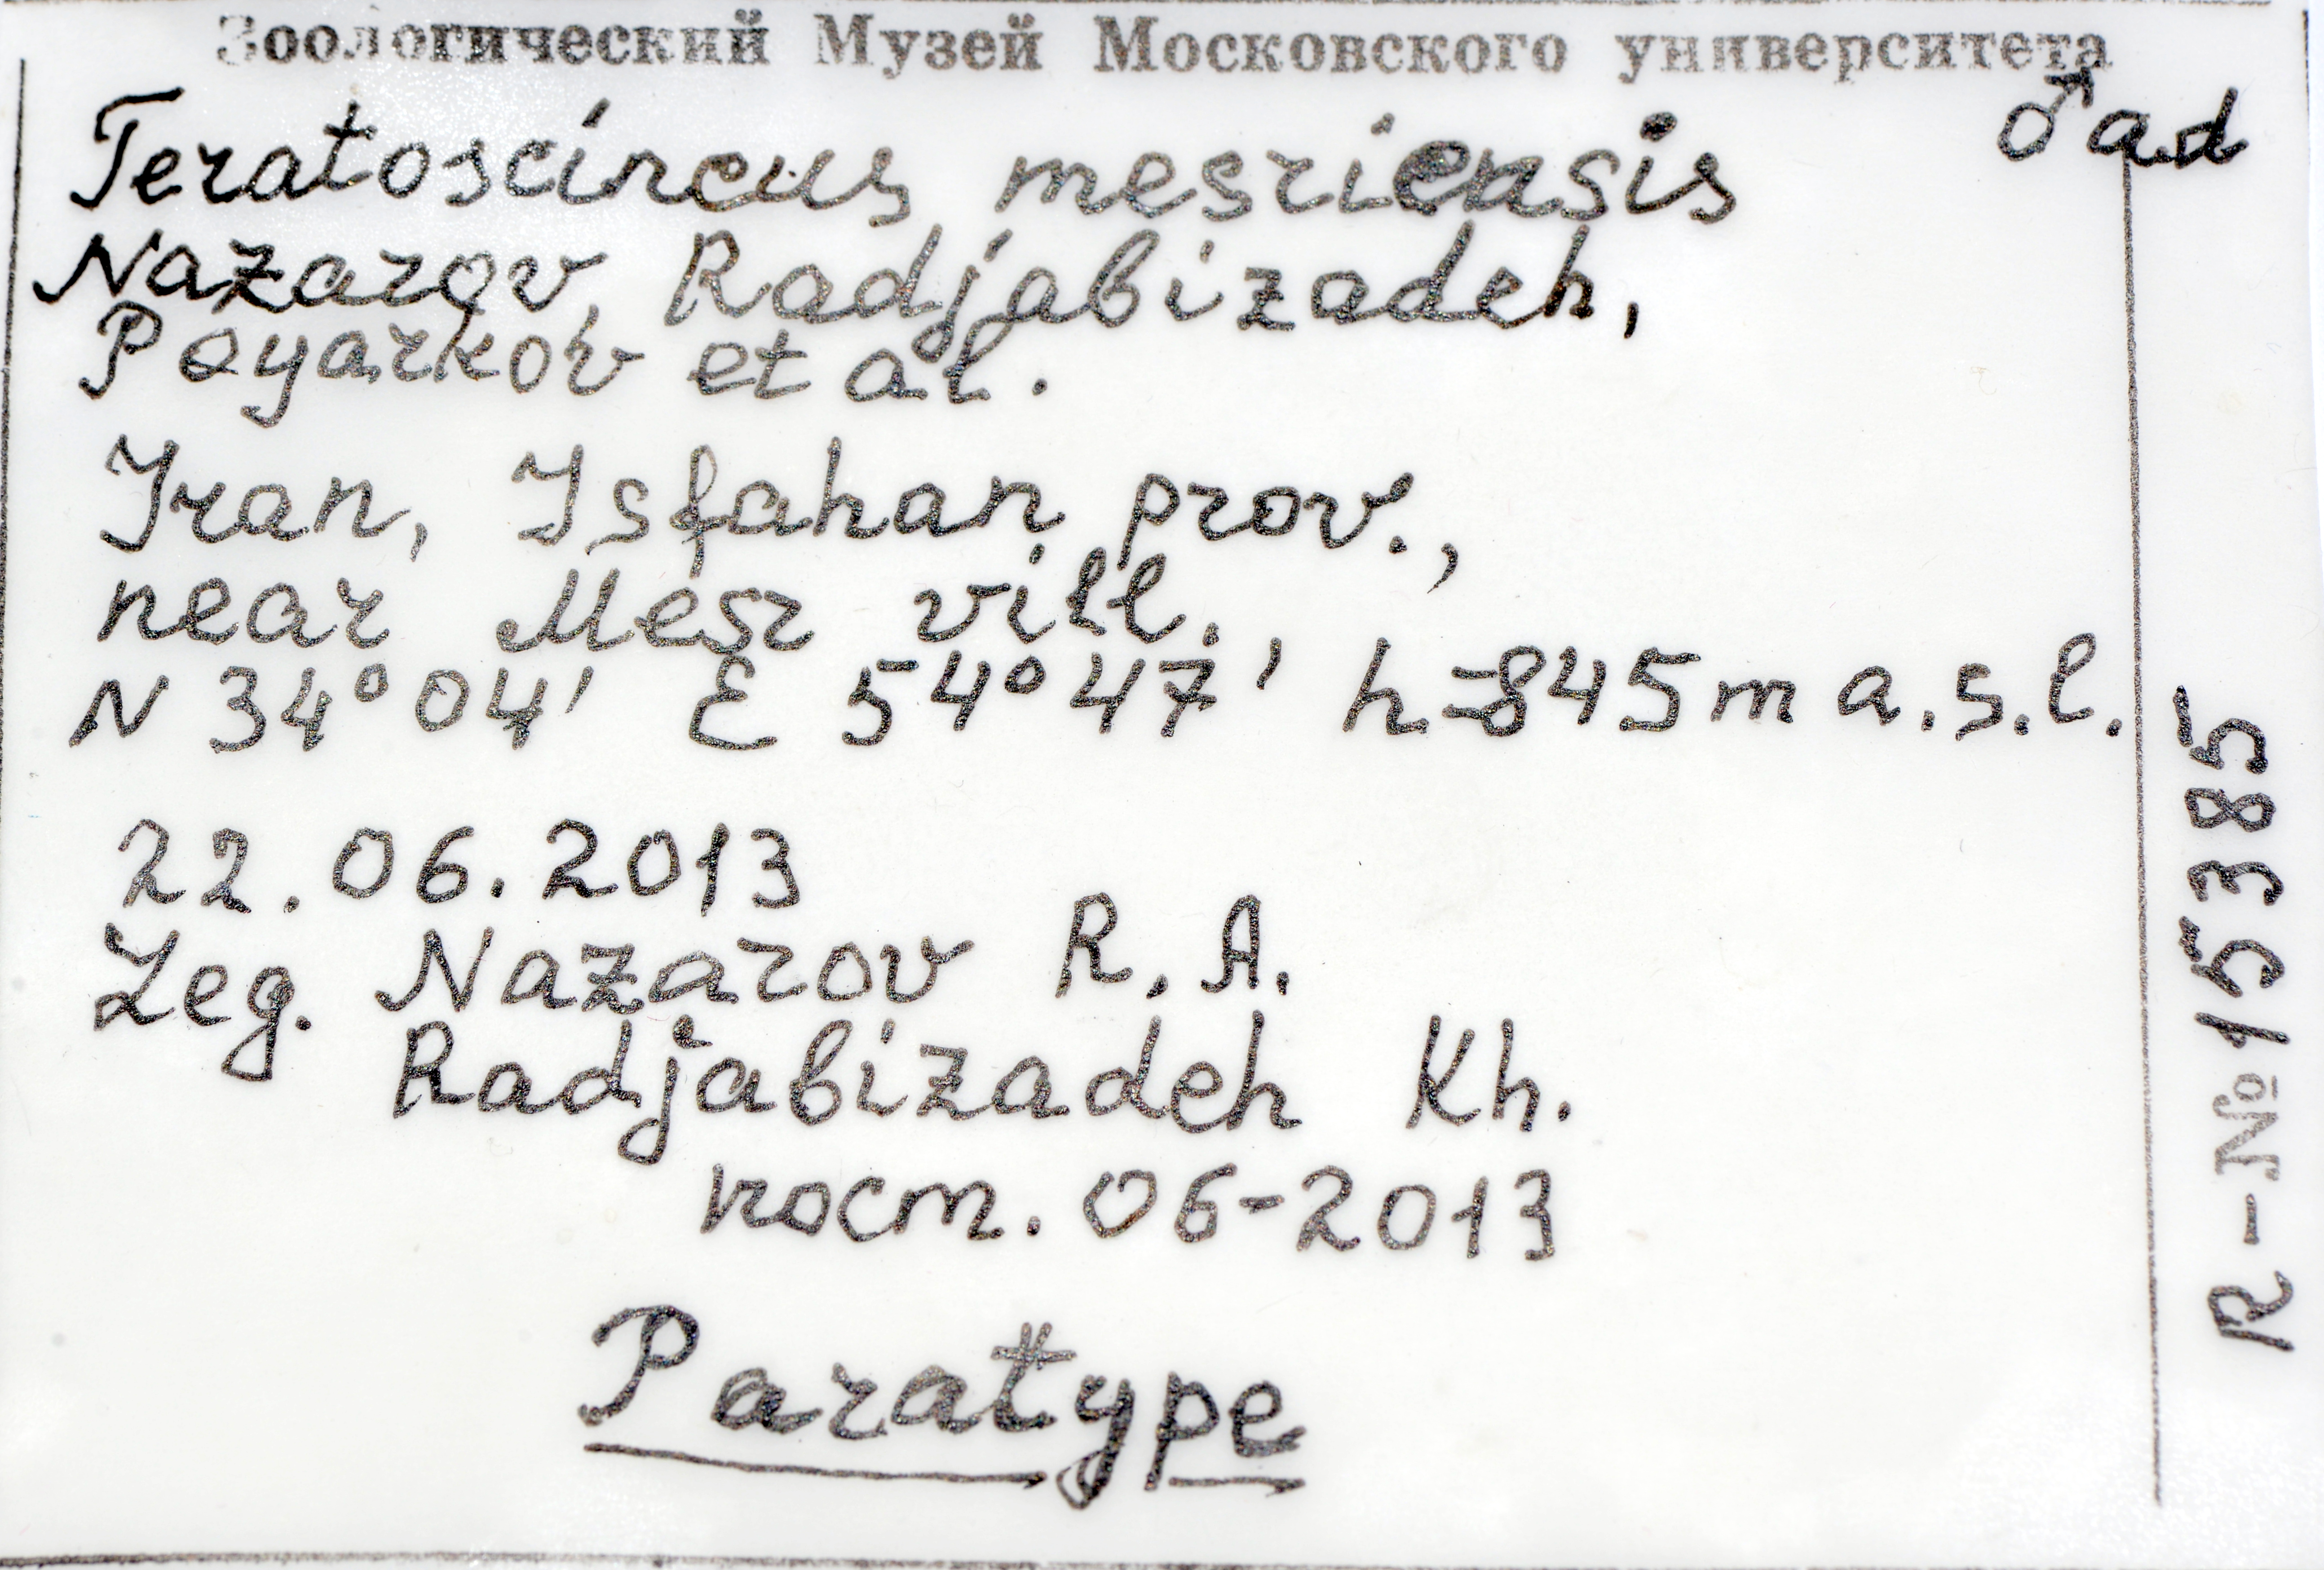 Зоологический Музей Московского университета
♂ ad
Teratoscincus mesriensis
Nazarov, Radjabizadeh,
Poyarkov et al.
Iran, Isfahan prov.,
near Mesr vill.,
N 34°04' E 54°47' h=845m a.s.l.
22.06.2013
Leg. Nazarov R.A.
Radjabizadeh Kh.
пост. 06-2013
Paratype
R-№ 15385